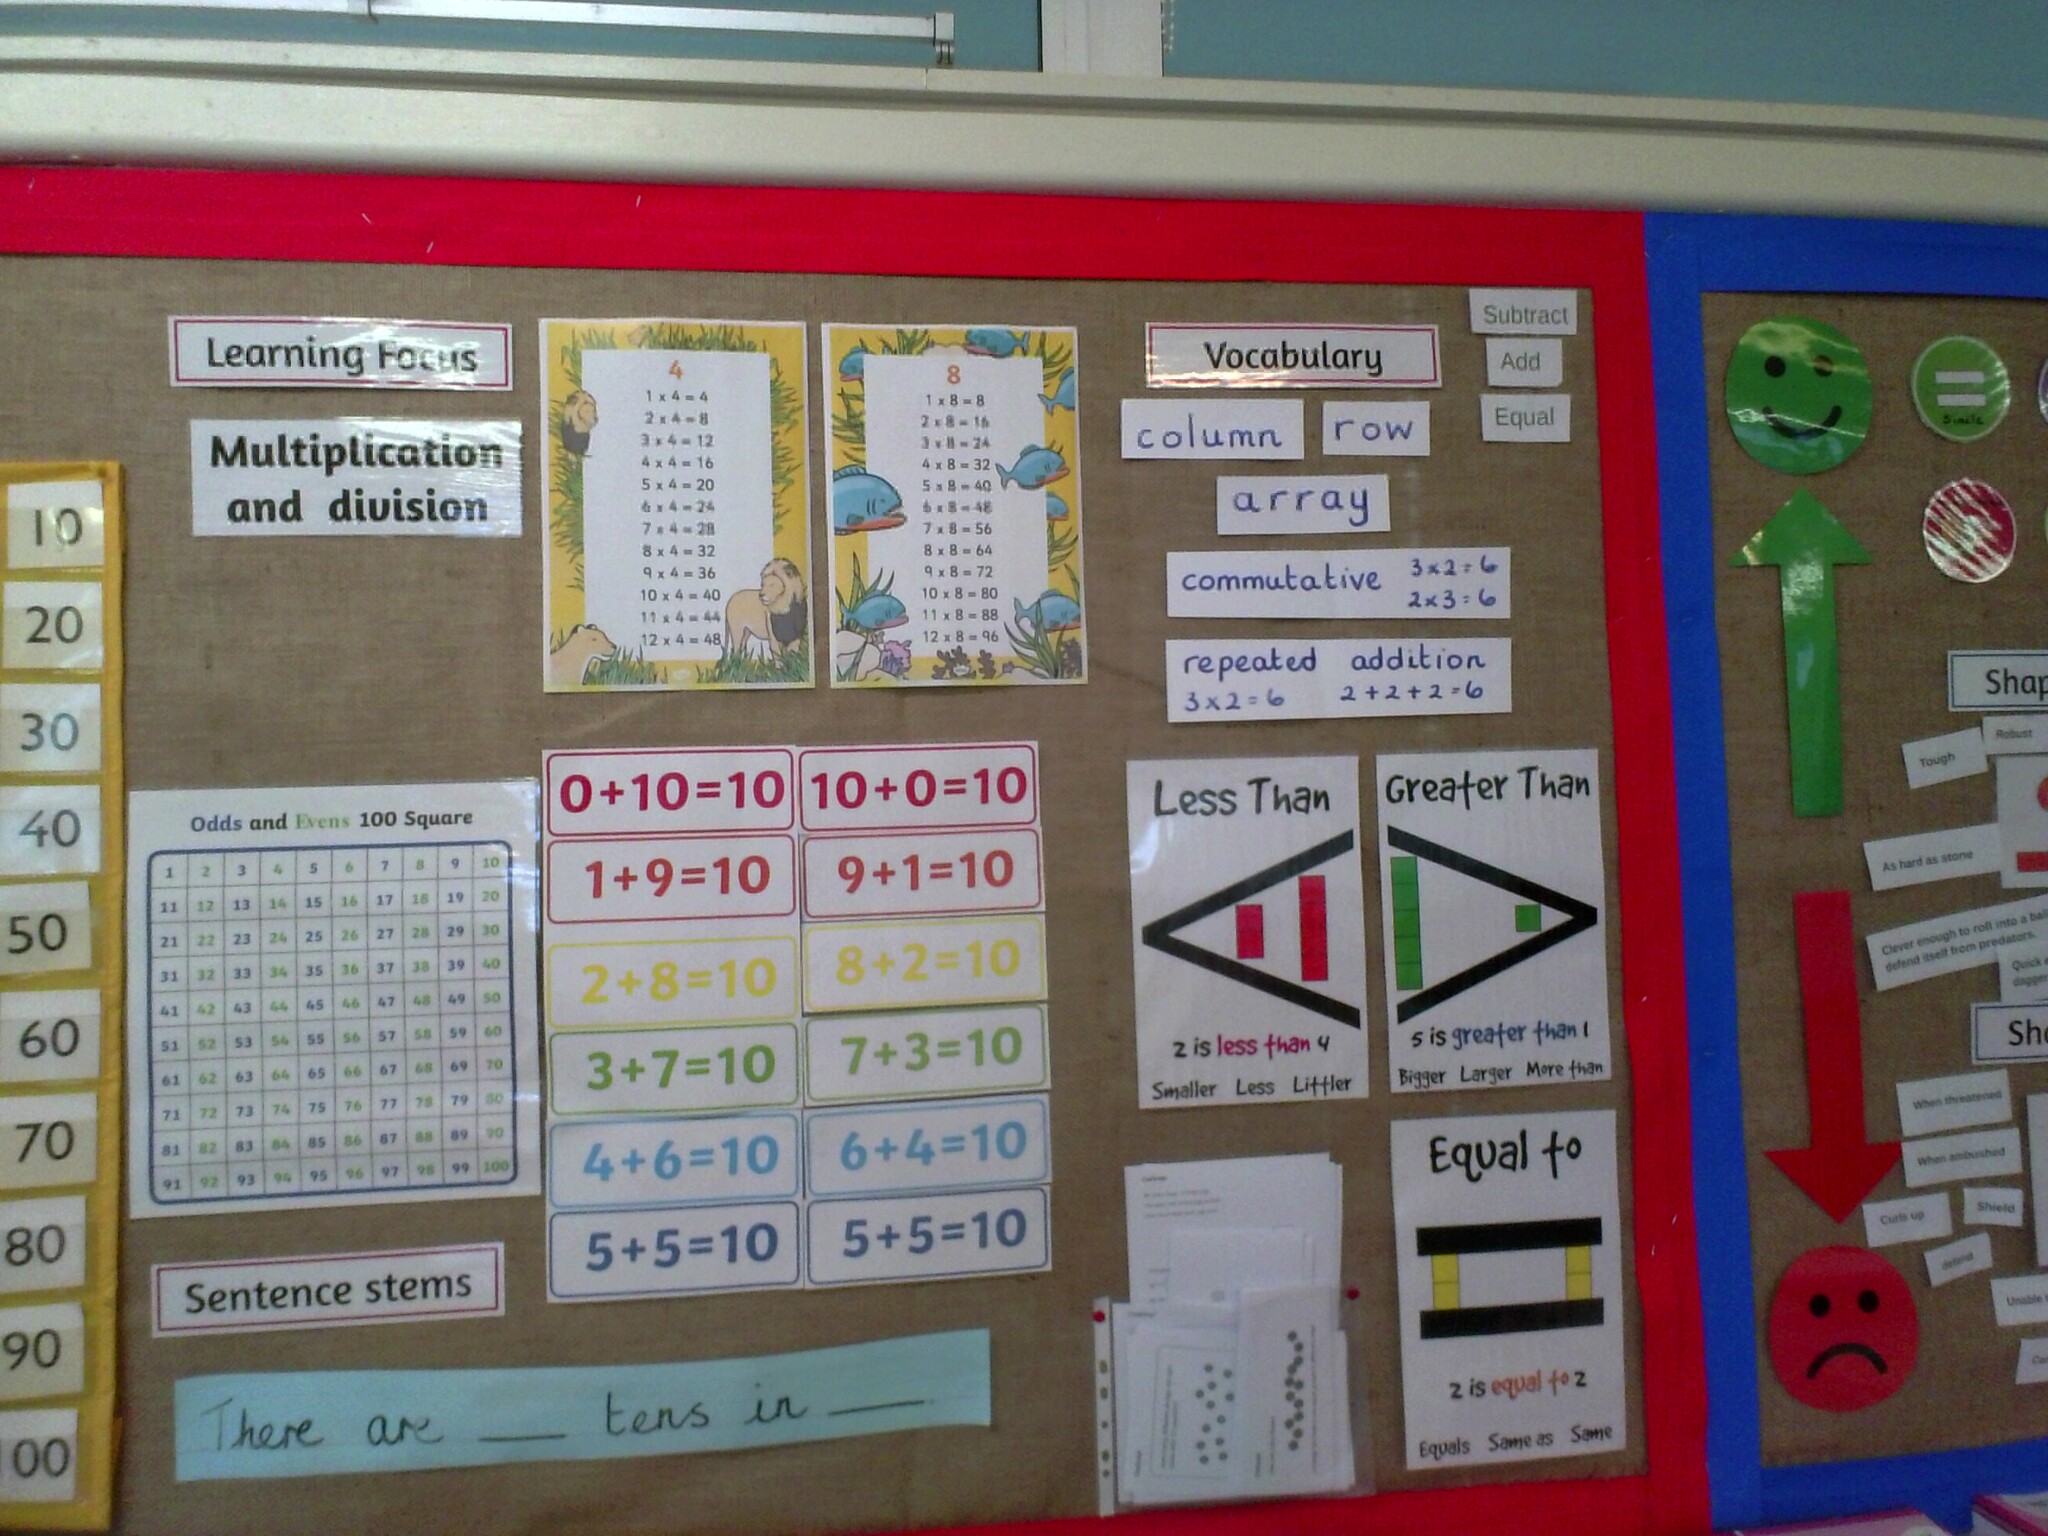 10
20
30
40
50
60
70
80
90
100
Learning Focus
Multiplication
and division
4
1 x 4 = 4
2 x 4 = 8
3 x 4 = 12
4 x 4 = 16
5 x 4 = 20
6 x 4 = 24
7 x 4 = 28
8 x 4 = 32
9 x 4 = 36
10 x 4 = 40
11 x 4 = 44
12 x 4 = 48
8
1 x 8 = 8
2 x 8 = 16
3 x 8 = 24
4 x 8 = 32
5 x 8 = 40
6 x 8 = 48
7 x 8 = 56
8 x 8 = 64
9 x 8 = 72
10 x 8 = 80
11 x 8 = 88
12 x 8 = 96
Odds and Evens 100 Square
1 2 3 4 5 6 7 8 9 10
11 12 13 14 15 16 17 18 19 20
21 22 23 24 25 26 27 28 29 30
31 32 33 34 35 36 37 38 39 40
41 42 43 44 45 46 47 48 49 50
51 52 53 54 55 56 57 58 59 60
61 62 63 64 65 66 67 68 69 70
71 72 73 74 75 76 77 78 79 80
81 82 83 84 85 86 87 88 89 90
91 92 93 94 95 96 97 98 99 100
0+10=10 10+0=10
1+9=10 9+1=10
2+8=10 8+2=10
3+7=10 7+3=10
4+6=10 6+4=10
5+5=10 5+5=10
Sentence stems
There are ___ tens in ___.
Vocabulary
Subtract
Add
Equal
column row
array
commutative 3x2=6
2x3=6
repeated addition
3x2=6 2+2+2=6
Less Than
2 is less than 4
Smaller Less Littler
Greater Than
5 is greater than 1
Bigger Larger More than
Equal to
2 is equal to 2
Equals Same as Same
Simile
Shap
Tough
Robust
As hard as stone
Clever enough to roll into a ball
defend itself from predators.
Quick
When threatened
When ambushed
Curls up
Shield
defend
Unable